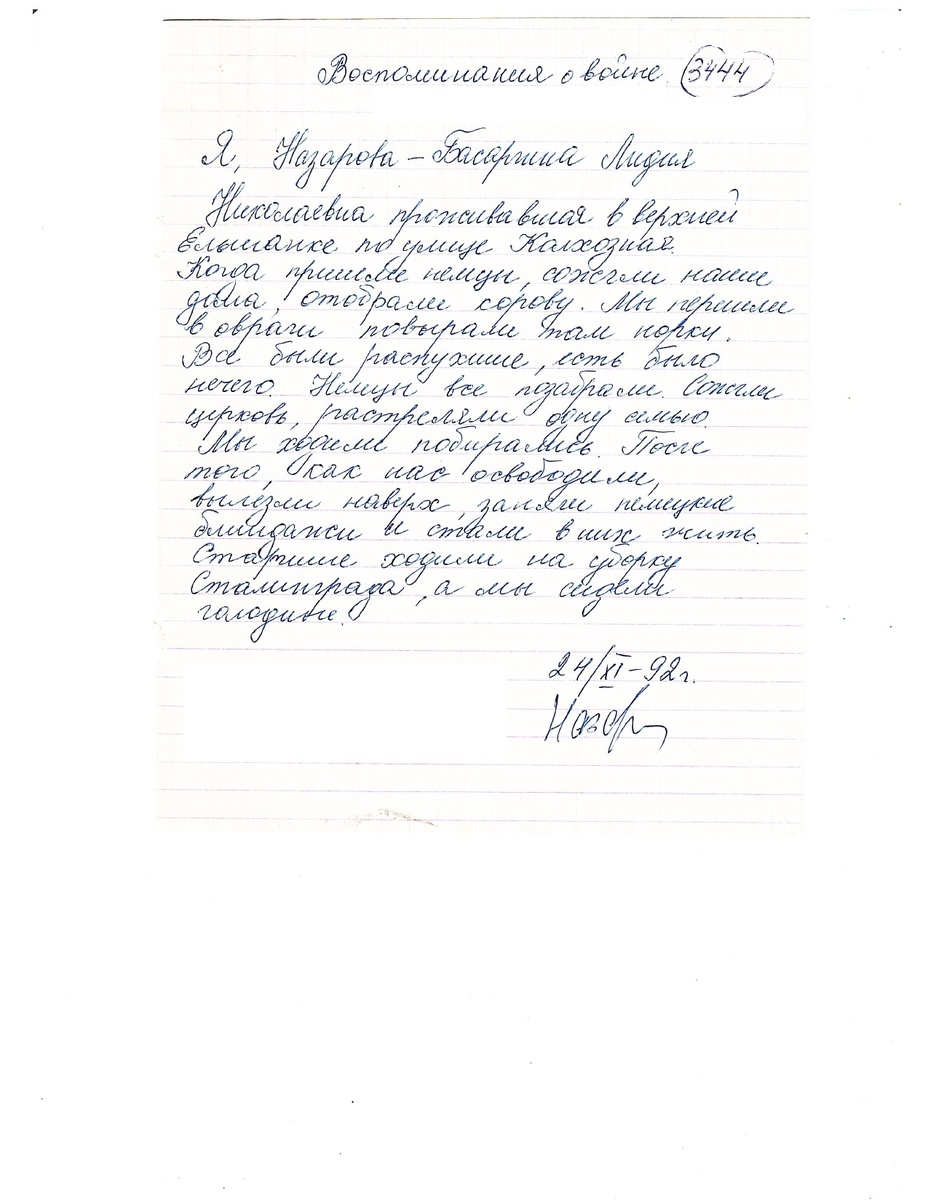 Воспоминания о войне. 3444
Я, Назарова – Басаргина Лидия
Николаевна проживавшая в верхней
Ельшанке по улице Калхозная.
Когда пришли немцы, сожгли наши
дома, отобрали корову. Мы перешли
в овраги повырали там норки.
Все были распухшие, есть было
нечего. Немцы все позабрали. Сожгли
церковь, растреляли одну семью.
Мы ходили побирались. После
того, как нас освободили,
вылезли наверх, заняли немецкие
блиндажи и стали в них жить.
Старшие ходили на уборку
Сталинграда, а мы сидели
голодные.
24/XI–92г.